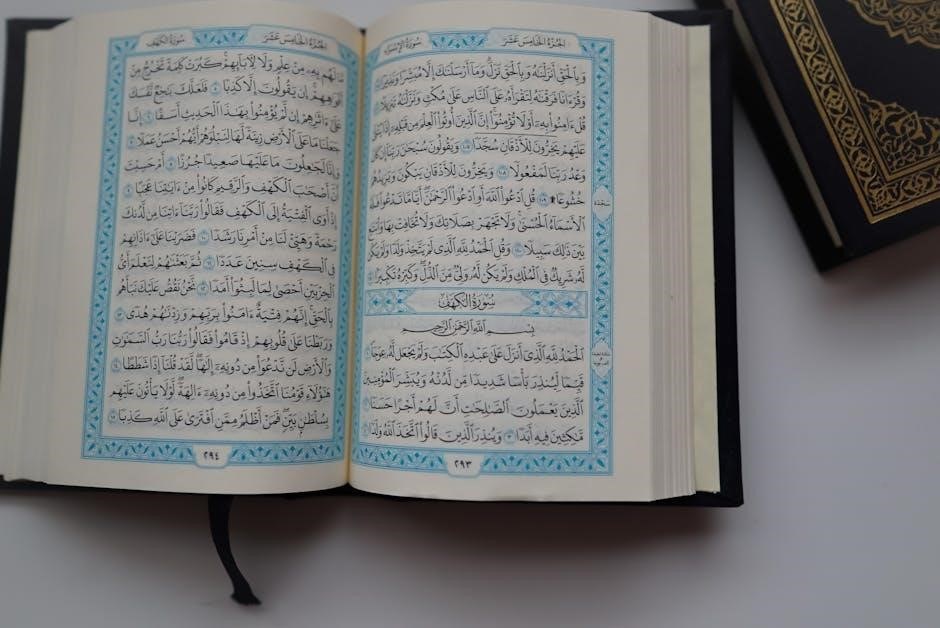 سُورَةُ الإِسْرَاءِ الجُزْءُ الخَامِسَ عَشَرَ
وَبِالْحَقِّ أَنزَلْنَٰهُ وَبِالْحَقِّ نَزَلَ وَمَآ أَرْسَلْنَٰكَ إِلَّا مُبَشِّرًا وَنَذِيرًا ١٠٥
وَقُرْءَانًا فَرَقْنَٰهُ لِتَقْرَأَهُۥ عَلَى النَّاسِ عَلَىٰ مُكْثٍ وَنَزَّلْنَٰهُ تَنزِيلًا ١٠٦
قُلْ ءَامِنُوا۟ بِهِۦٓ أَوْ لَا تُؤْمِنُوٓا۟ إِنَّ الَّذِينَ أُوتُوا۟ الْعِلْمَ مِن قَبْلِهِۦٓ إِذَا يُتْلَىٰ
عَلَيْهِمْ يَخِرُّونَ لِلْأَذْقَانِ سُجَّدًا ١٠٧ وَيَقُولُونَ سُبْحَٰنَ رَبِّنَآ إِن كَانَ
وَعْدُ رَبِّنَا لَمَفْعُولًا ١٠٨ وَيَخِرُّونَ لِلْأَذْقَانِ يَبْكُونَ وَيَزِيدُهُمْ
خُشُوعًا ۩ ١٠٩ قُلِ ادْعُوا۟ اللَّهَ أَوِ ادْعُوا۟ الرَّحْمَٰنَ أَيًّا مَّا تَدْعُوا۟ فَلَهُ
سَجْدَة
الْأَسْمَآءُ الْحُسْنَىٰ وَلَا تَجْهَرْ بِصَلَاتِكَ وَلَا تُخَافِتْ بِهَا وَابْتَغِ
بَيْنَ ذَٰلِكَ سَبِيلًا ١١٠ وَقُلِ الْحَمْدُ لِلَّهِ الَّذِى لَمْ يَتَّخِذْ وَلَدًا وَلَمْ يَكُن
لَّهُۥ شَرِيكٌ فِى الْمُلْكِ وَلَمْ يَكُن لَّهُۥ وَلِىٌّ مِّنَ الذُّلِّ وَكَبِّرْهُ تَكْبِيرًا ١١١
سُورَةُ الكَهْفِ
بِسْمِ اللَّهِ الرَّحْمَٰنِ الرَّحِيمِ
الْحَمْدُ لِلَّهِ الَّذِىٓ أَنزَلَ عَلَىٰ عَبْدِهِ الْكِتَٰبَ وَلَمْ يَجْعَل لَّهُۥ عِوَجَا ١
قَيِّمًا لِّيُنذِرَ بَأْسًا شَدِيدًا مِّن لَّدُنْهُ وَيُبَشِّرَ الْمُؤْمِنِينَ
الَّذِينَ يَعْمَلُونَ الصَّٰلِحَٰتِ أَنَّ لَهُمْ أَجْرًا حَسَنًا ٢
مَّٰكِثِينَ فِيهِ أَبَدًا ٣ وَيُنذِرَ الَّذِينَ قَالُوا۟ اتَّخَذَ اللَّهُ وَلَدًا ٤
٢٩٣
سُورَةُ الكَهْفِ الجُزْءُ الخَامِسَ عَشَرَ
مَّا لَهُم بِهِۦ مِنْ عِلْمٍ وَلَا لِءَابَآئِهِمْ كَبُرَتْ كَلِمَةً تَخْرُجُ مِنْ
أَفْوَٰهِهِمْ إِن يَقُولُونَ إِلَّا كَذِبًا ٥ فَلَعَلَّكَ بَٰخِعٌ نَّفْسَكَ
عَلَىٰٓ ءَاثَٰرِهِمْ إِن لَّمْ يُؤْمِنُوا۟ بِهَٰذَا الْحَدِيثِ أَسَفًا ٦ إِنَّا
جَعَلْنَا مَا عَلَى الْأَرْضِ زِينَةً لَّهَا لِنَبْلُوَهُمْ أَيُّهُمْ أَحْسَنُ عَمَلًا ٧
وَإِنَّا لَجَٰعِلُونَ مَا عَلَيْهَا صَعِيدًا جُرُزًا ٨ أَمْ حَسِبْتَ
أَنَّ أَصْحَٰبَ الْكَهْفِ وَالرَّقِيمِ كَانُوا۟ مِنْ ءَايَٰتِنَا عَجَبًا ٩
إِذْ أَوَى الْفِتْيَةُ إِلَى الْكَهْفِ فَقَالُوا۟ رَبَّنَآ ءَاتِنَا مِن لَّدُنكَ
رَحْمَةً وَهَيِّئْ لَنَا مِنْ أَمْرِنَا رَشَدًا ١٠ فَضَرَبْنَا عَلَىٰٓ ءَاذَانِهِمْ
فِى الْكَهْفِ سِنِينَ عَدَدًا ١١ ثُمَّ بَعَثْنَٰهُمْ لِنَعْلَمَ أَىُّ
الْحِزْبَيْنِ أَحْصَىٰ لِمَا لَبِثُوٓا۟ أَمَدًا ١٢ نَّحْنُ نَقُصُّ عَلَيْكَ نَبَأَهُم
بِالْحَقِّ إِنَّهُمْ فِتْيَةٌ ءَامَنُوا۟ بِرَبِّهِمْ وَزِدْنَٰهُمْ هُدًى ١٣
وَرَبَطْنَا عَلَىٰ قُلُوبِهِمْ إِذْ قَامُوا۟ فَقَالُوا۟ رَبُّنَا رَبُّ السَّمَٰوَٰتِ
وَالْأَرْضِ لَن نَّدْعُوَا۟ مِن دُونِهِۦٓ إِلَٰهًا لَّقَدْ قُلْنَآ إِذًا شَطَطًا ١٤
هَٰٓؤُلَآءِ قَوْمُنَا اتَّخَذُوا۟ مِن دُونِهِۦٓ ءَالِهَةً لَّوْلَا يَأْتُونَ عَلَيْهِم
بِسُلْطَٰنٍ بَيِّنٍ فَمَنْ أَظْلَمُ مِمَّنِ افْتَرَىٰ عَلَى اللَّهِ كَذِبًا ١٥
٢٩٤